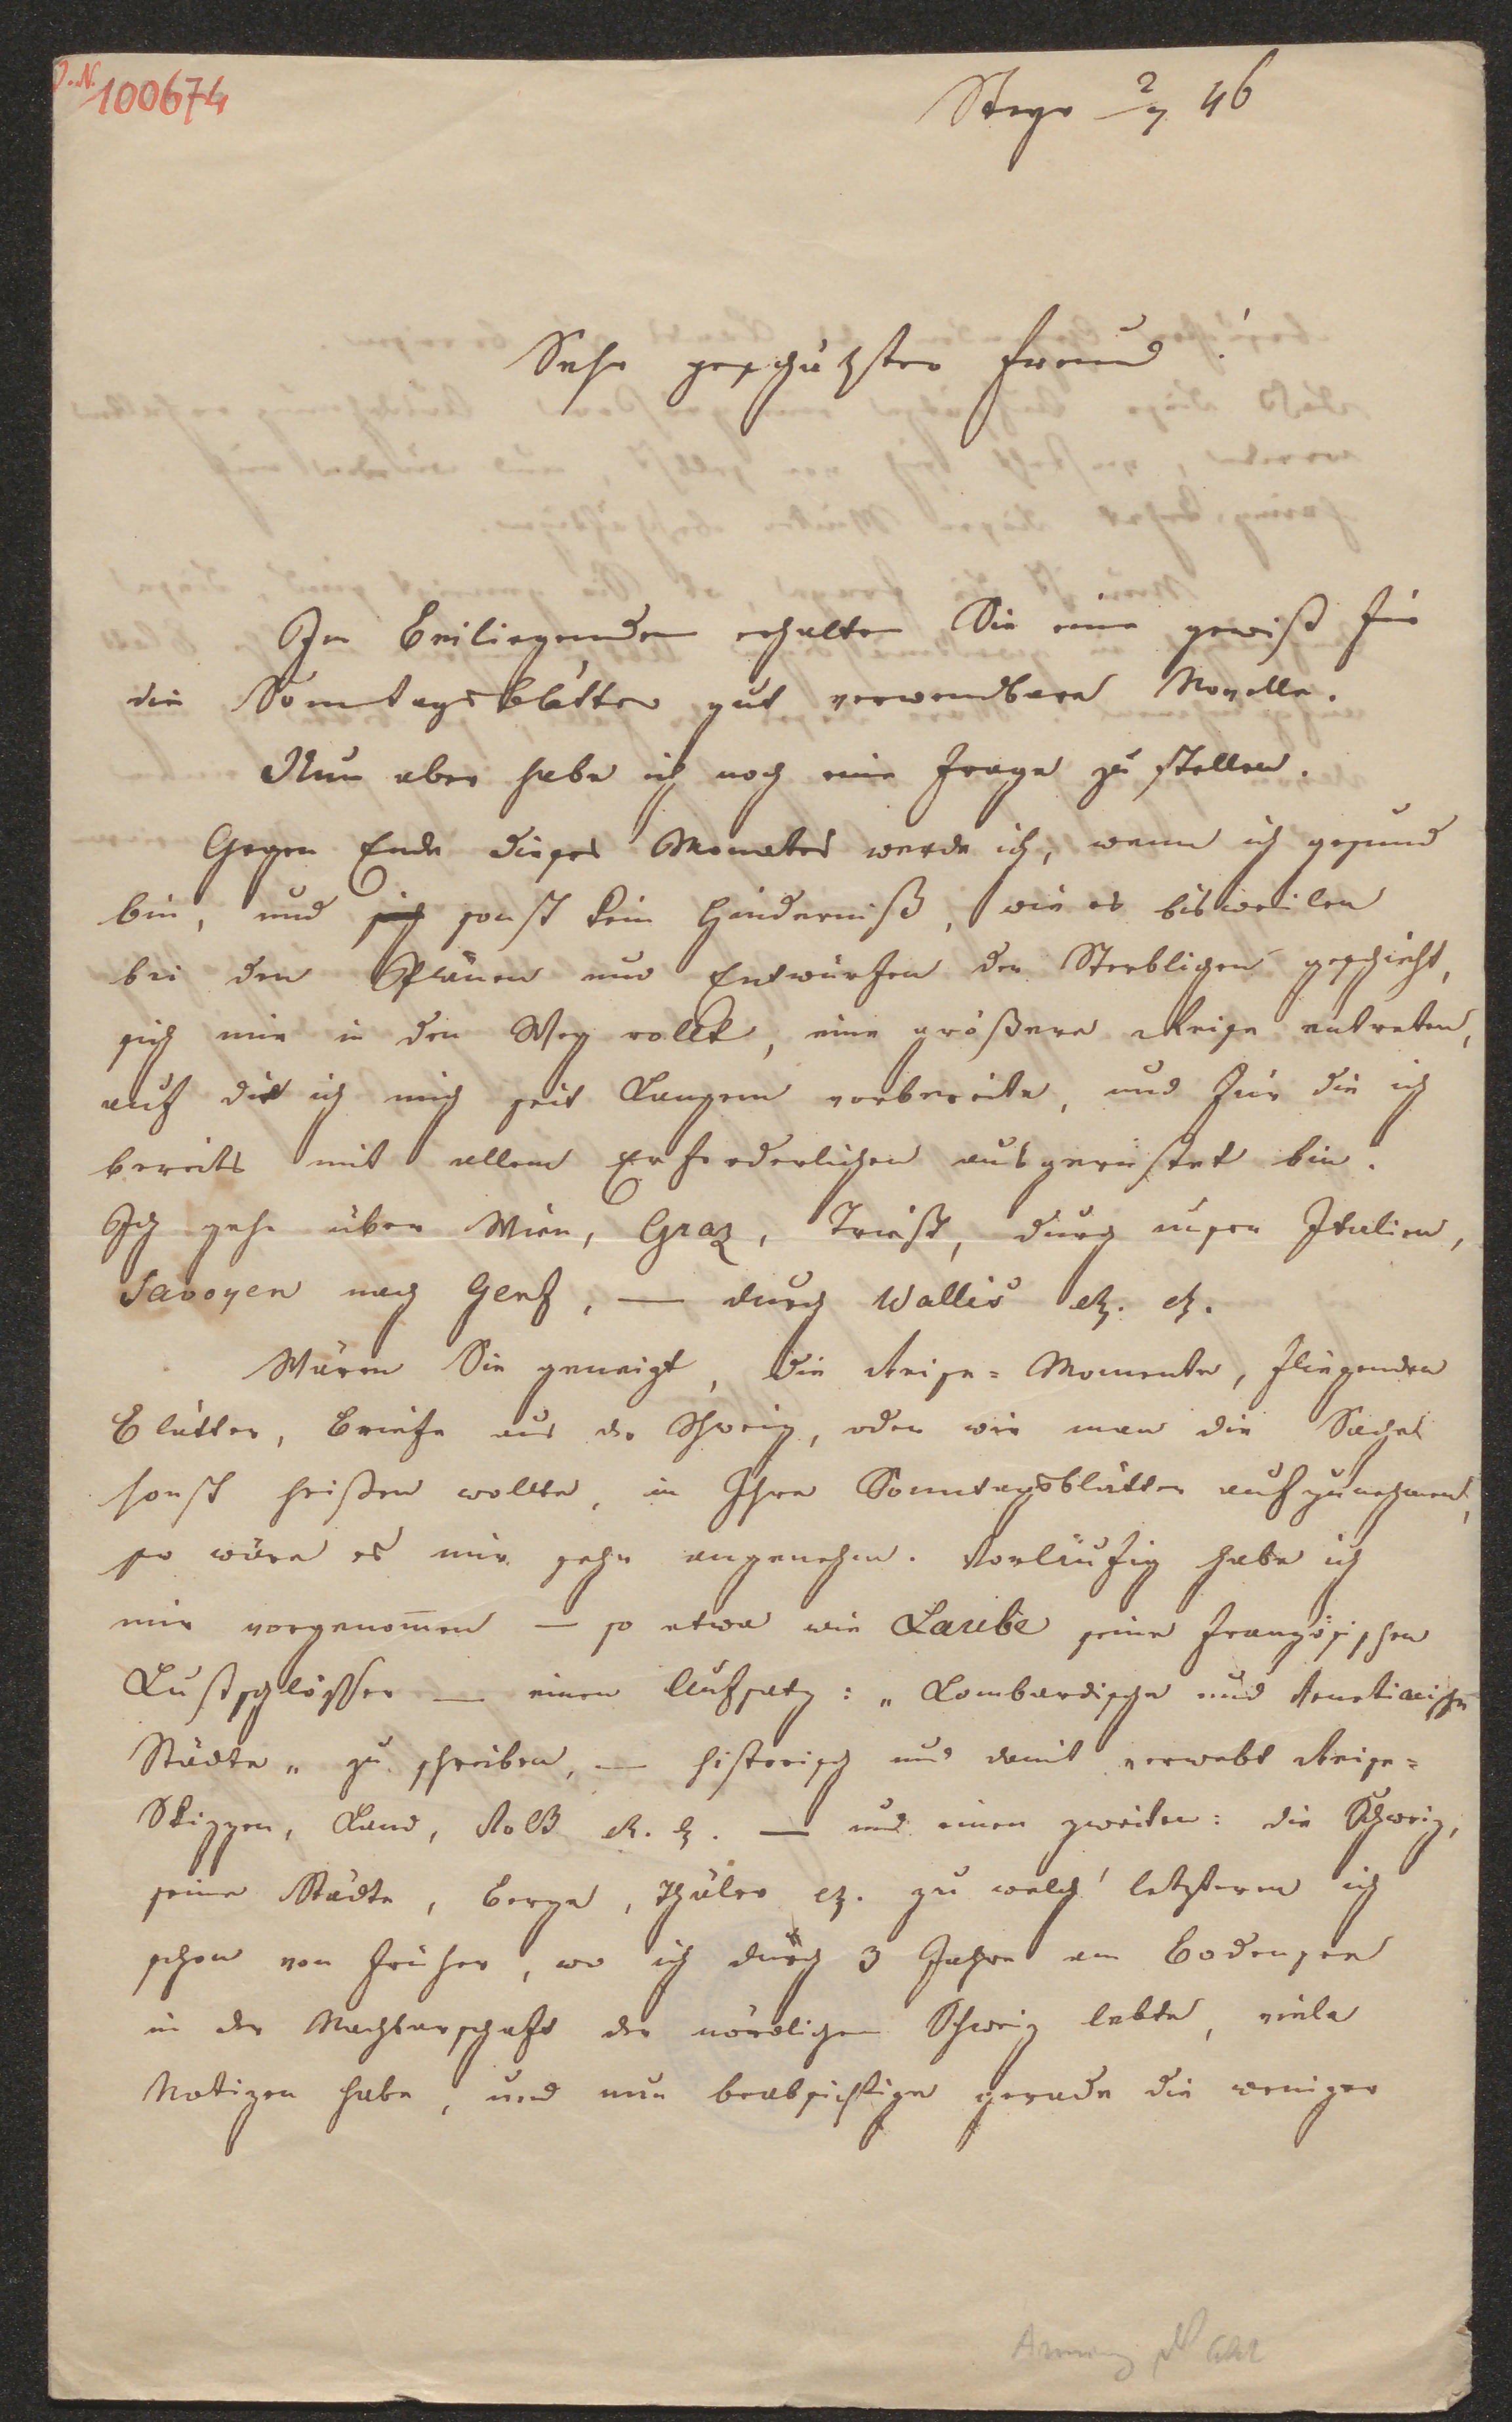 J. N. 100674
Steyr 2/7 46
Sehr geschätzter Freund!
Im Beiliegenden erhalten Sie eine gewiß für
die Sonntagsblätter gut verwendbare Novelle.
Nun aber habe ich noch eine Frage zu stellen.
Gegen Ende dieses Monates werde ich, wenn ich gesund
bin, und sich sonst kein Hinderniß, wie es bisweilen
bei den Plänen und Entwürfen der Sterblichen geschieht,
sich mir in den Weg rollt, eine größere Reise antreten,
auf die ich mich seit Langem vorbereite, und für die ich
bereits mit allem Erforderlichen ausgerüstet bin.
Ich gehe über Wien, Graz, Triest, durch unser Italien,
Savoyen nach Genf, — durch Wallis etz. etz.
Wären Sie geneigt, die Reise-Momente, fliegenden
Blätter, Briefe aus der Schweiz, oder wie man die Sache
sonst heißen wollte, in Ihre Sonntagsblätter aufzunehmen,
so wäre es mir sehr angenehm. Vorläufig habe ich
mir vorgenom̅en — so etwa wie Laube seine französischen
Lustschlösser — einen Aufsatz: „Lombardische und Venetianische
Städte„ zu schreiben, — historisch und damit verwebt Reise-
Skizzen, Land, Volk etz. etz. — und einen zweiten: die Schweiz,
seine Städte, Berge, Thäler etz. zu welch' letzterem ich
schon von früher, wo ich durch 3 Jahre am Bodensee
in der Nachbarschaft der nördlichen Schweiz lebte, viele
Notizen habe, und nun beabsichtige gerade die weniger